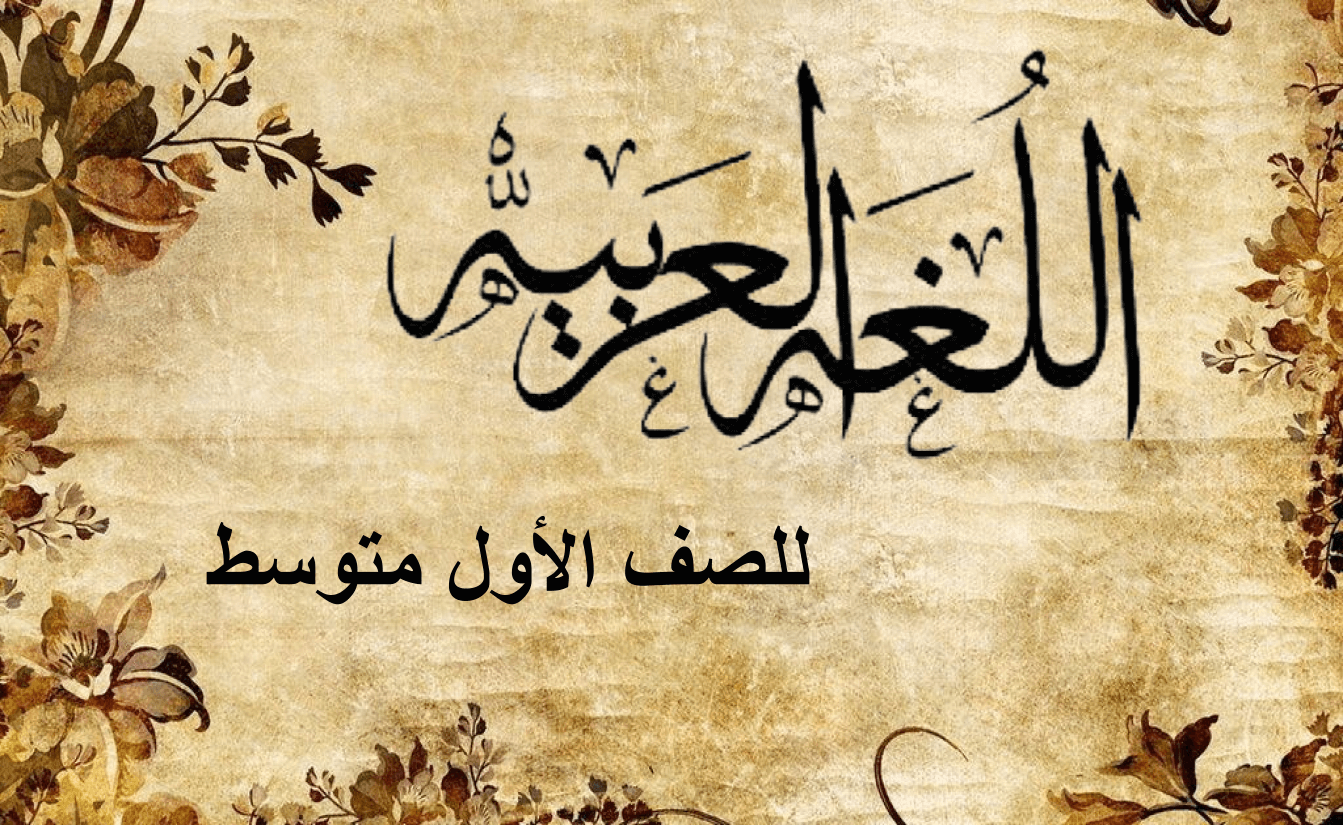 اللُغه العربيه
للصف الأول متوسط